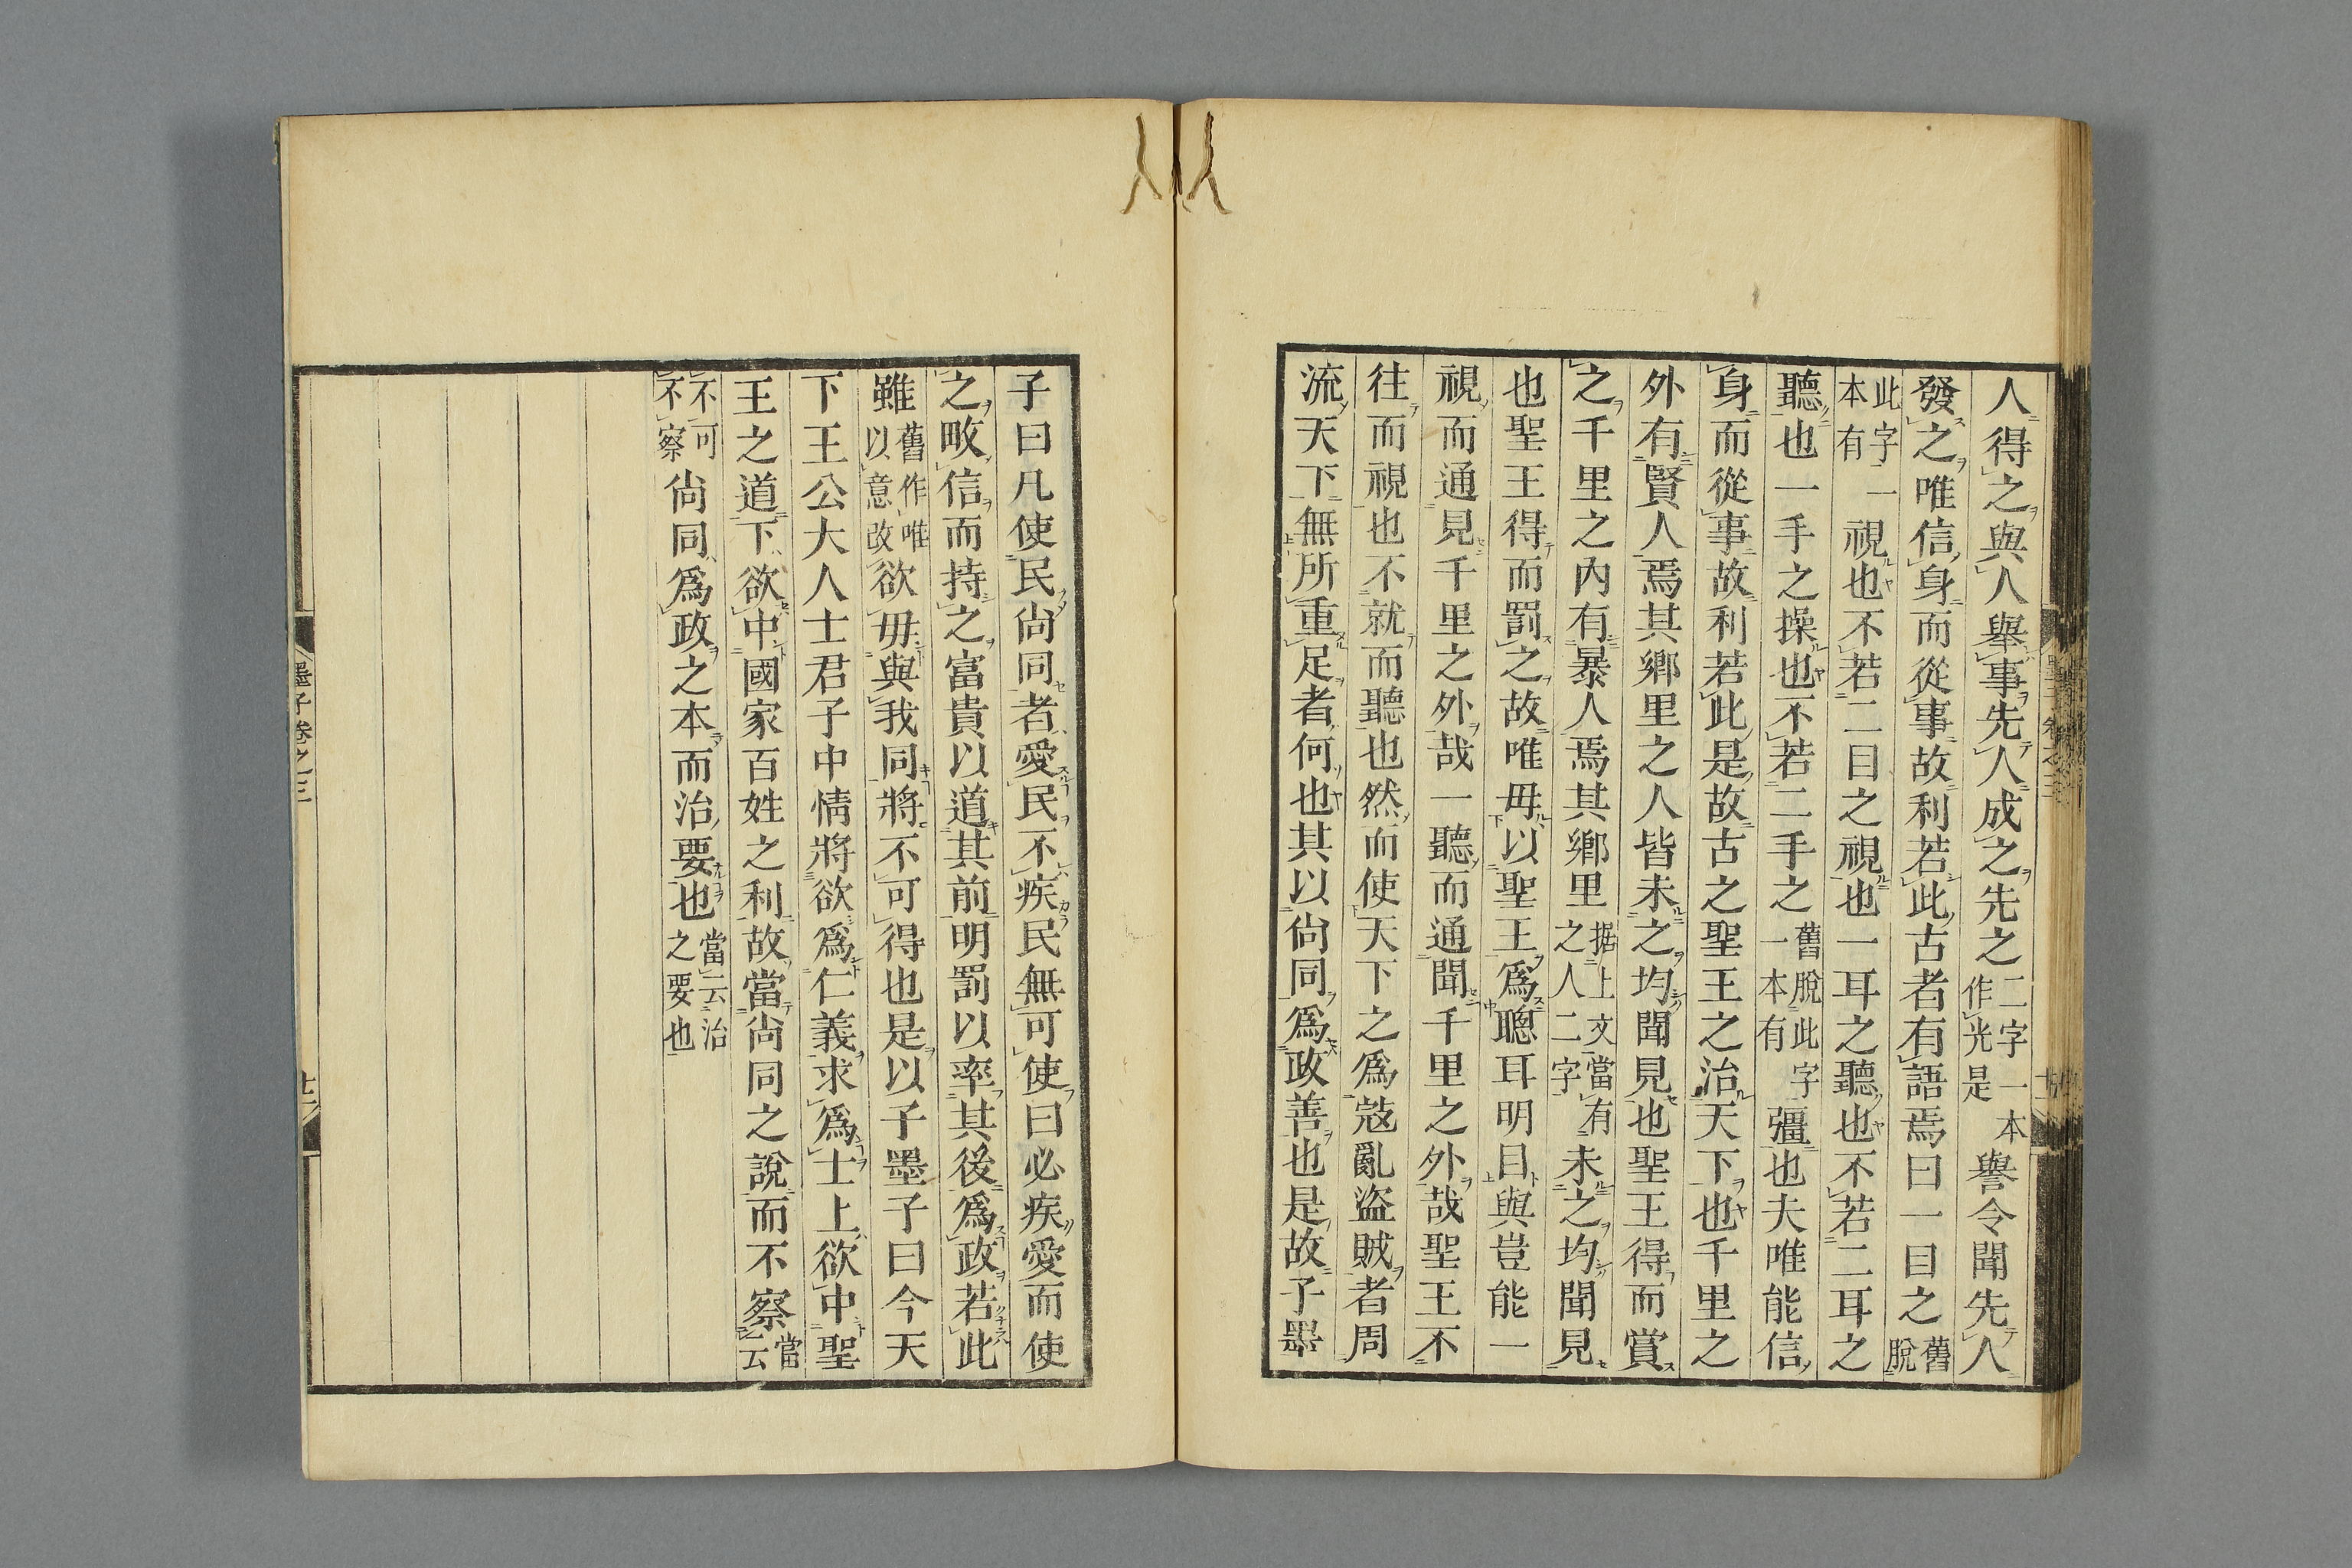 人得之與人舉事先人成之先之二字一本作光是譽令聞先人
發之唯信身而從事故利若此古者有語焉曰一目之舊脫
此字一本有視也不若二目之視也一耳之聽也不若二耳之
聽也一手之操也不若二手之舊脫此字一本有彊也夫唯能信
身而從事故利若此是故古之聖王之治天下也千里之
外有賢人焉其鄉里之人皆未之均聞見也聖王得而賞
之千里之內有暴人焉其鄉里据上文當有之人二字未之均聞見
也聖王得而罰之故唯毋以聖王爲聰耳明目與豈能一
視而通見千里之外哉一聽而通聞千里之外哉聖王不
往而視也不就而聽也然而使天下之爲寇亂盜賊者周
流天下無所重足者何也其以尙同爲政善也是故子墨
子曰凡使民尙同者愛民不疾民無可使曰必疾愛而使
之畋信而持之富貴以道其前明罰以率其後爲政若此
雖舊作唯以意改欲毋與我同將不可得也是以子墨子曰今天
下王公大人士君子中情將欲爲仁義求爲士上欲中聖
王之道下欲中國家百姓之利故當尙同之說而不察當云
不可不察尙同爲政之本而治要也當云治之要也
墨子卷之三